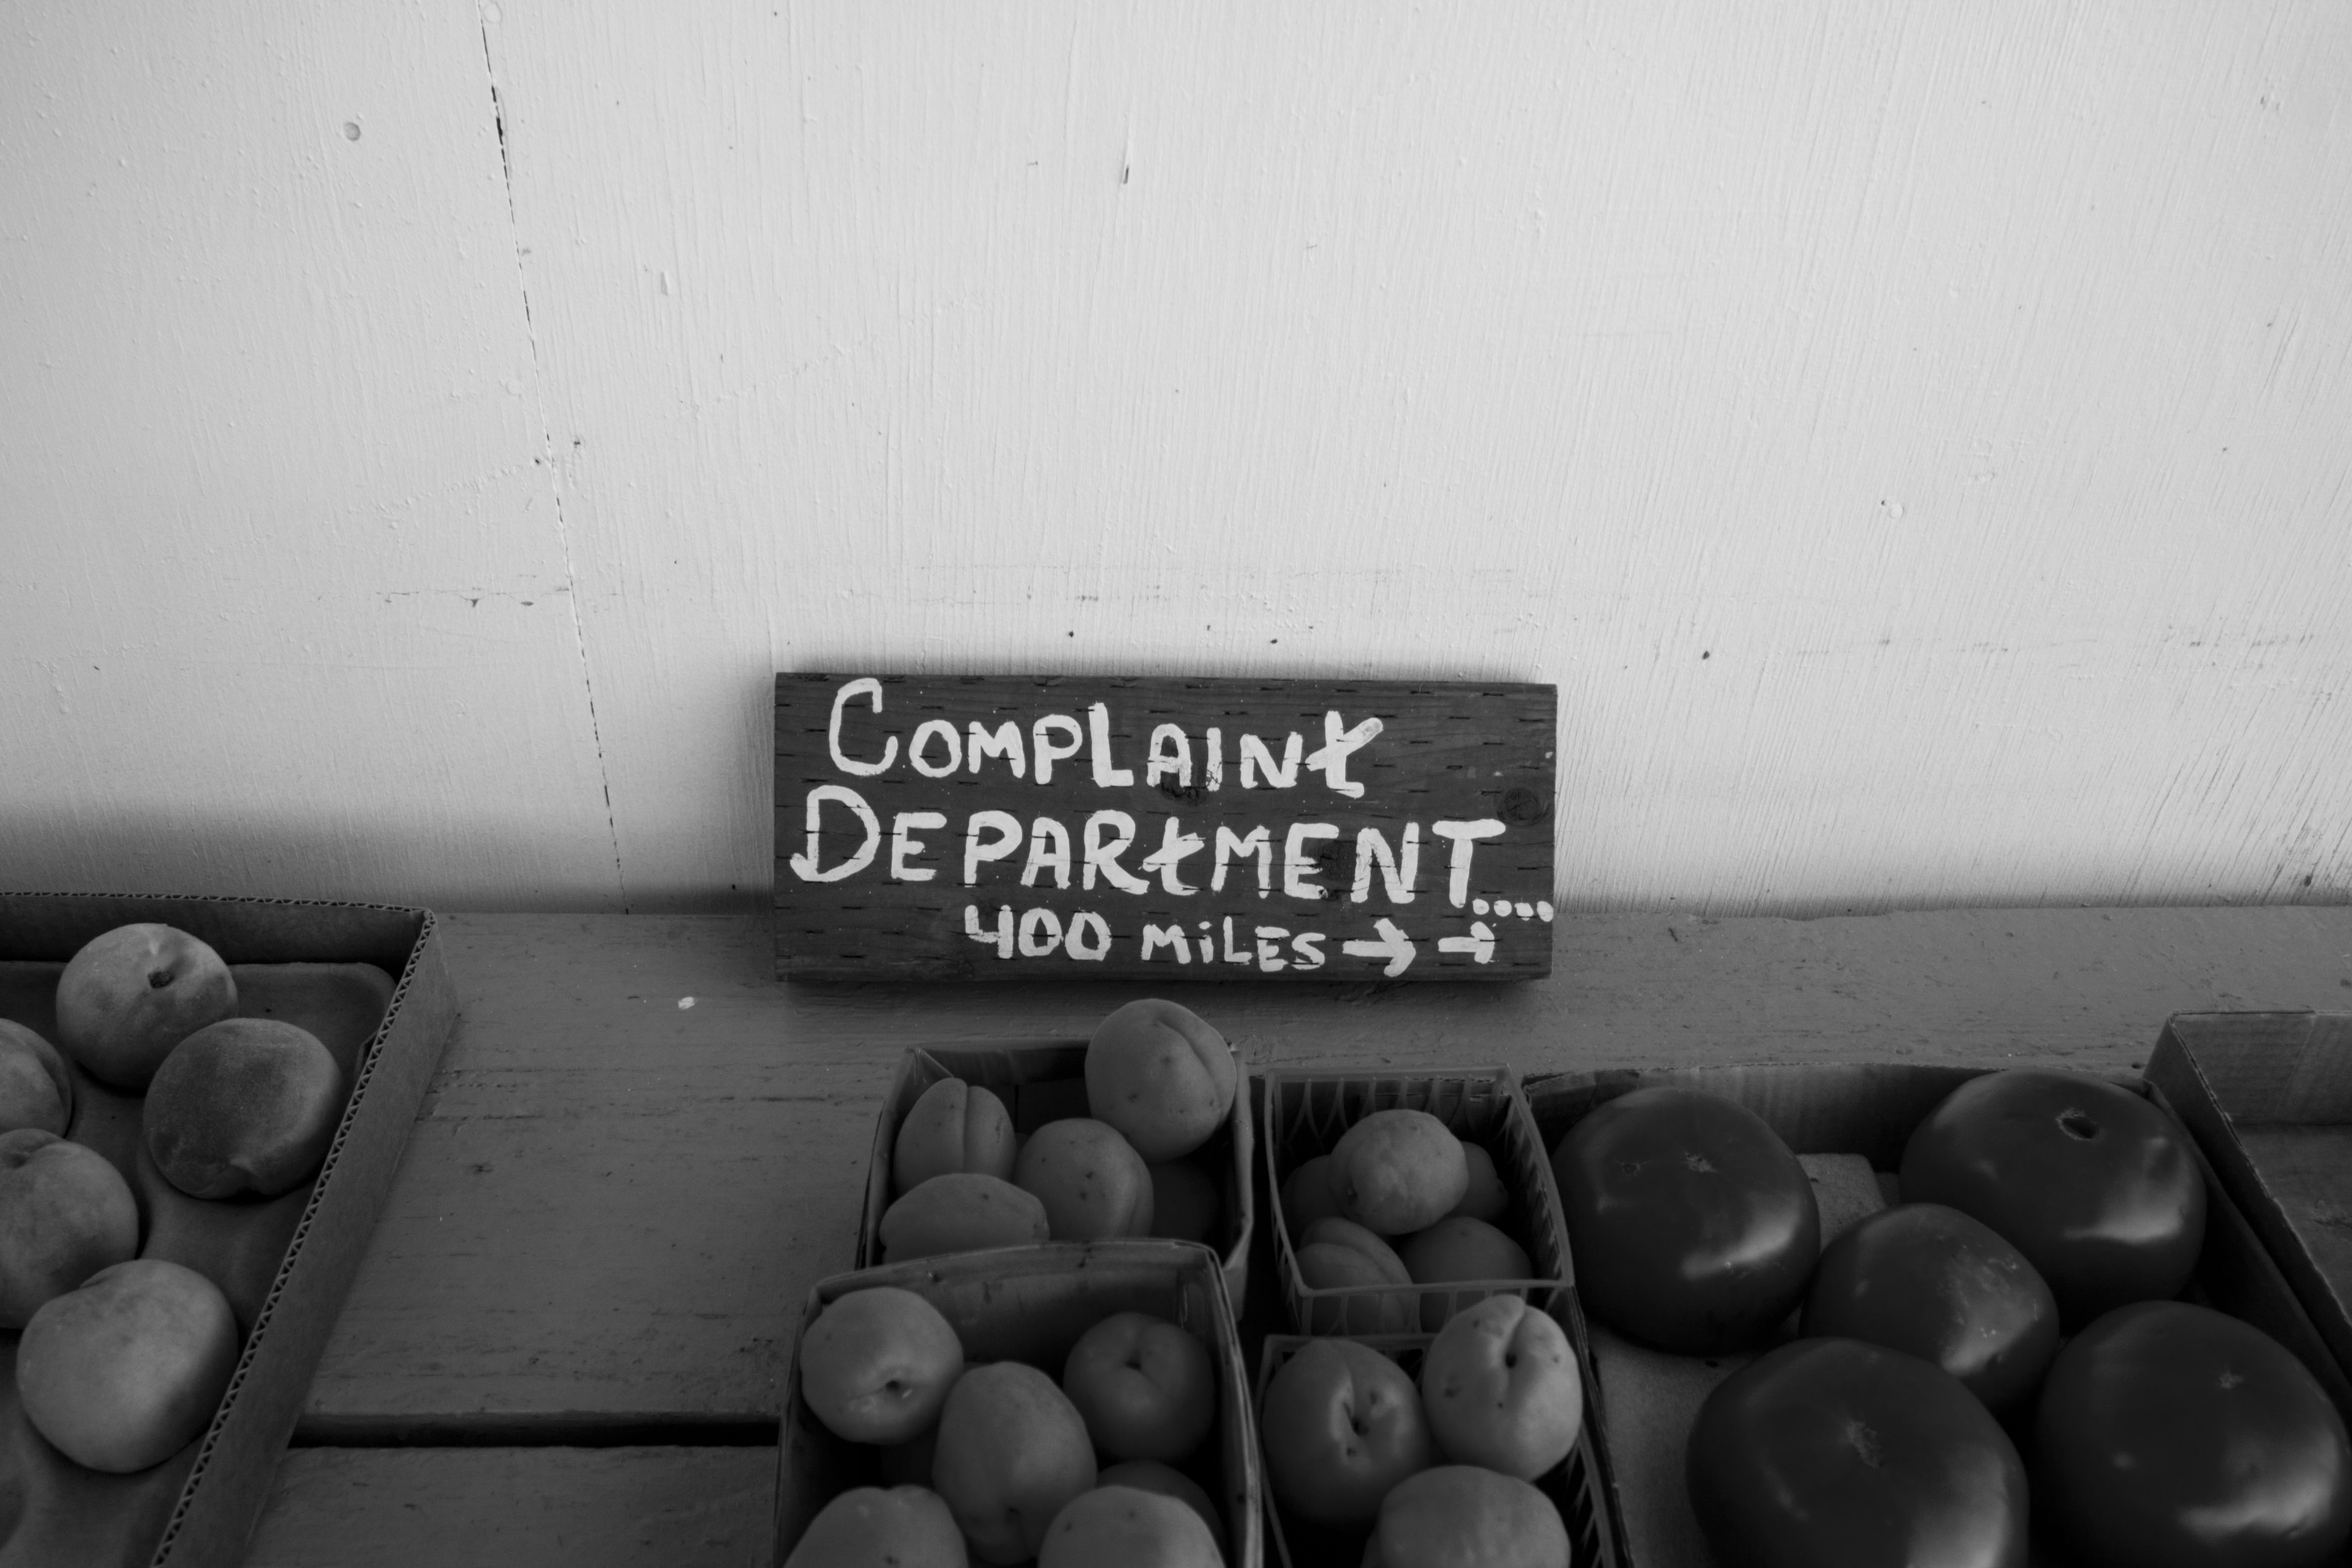 COMPLAINt
DEPARtMENT....
400 MiLES → →